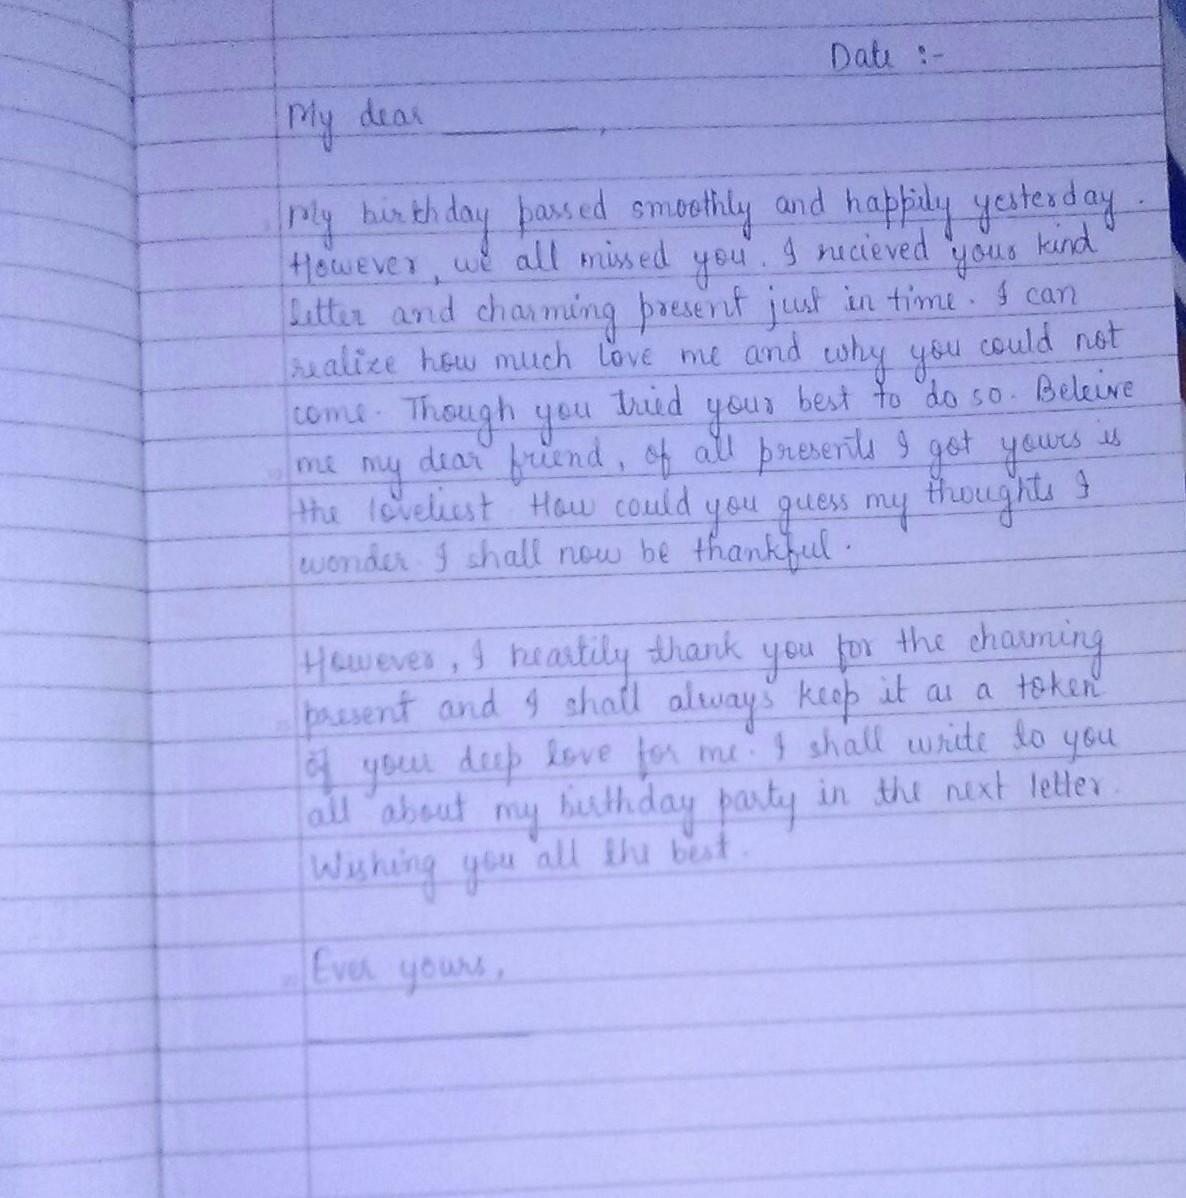 Date :-
My dear ________,
My birthday passed smoothly and happily yesterday.
However, we all missed you. I recieved your kind
letter and charming present just in time. I can
realize how much love me and why you could not
come. Though you tried your best to do so. Beleive
me my dear friend, of all presents I got yours is
the loveliest. How could you guess my thoughts I
wonder. I shall now be thankful.
However, I heartily thank you for the charming
present and I shall always keep it as a token
of your deep love for me. I shall write to you
all about my birthday party in the next letter.
Wishing you all the best.
Ever yours,
________